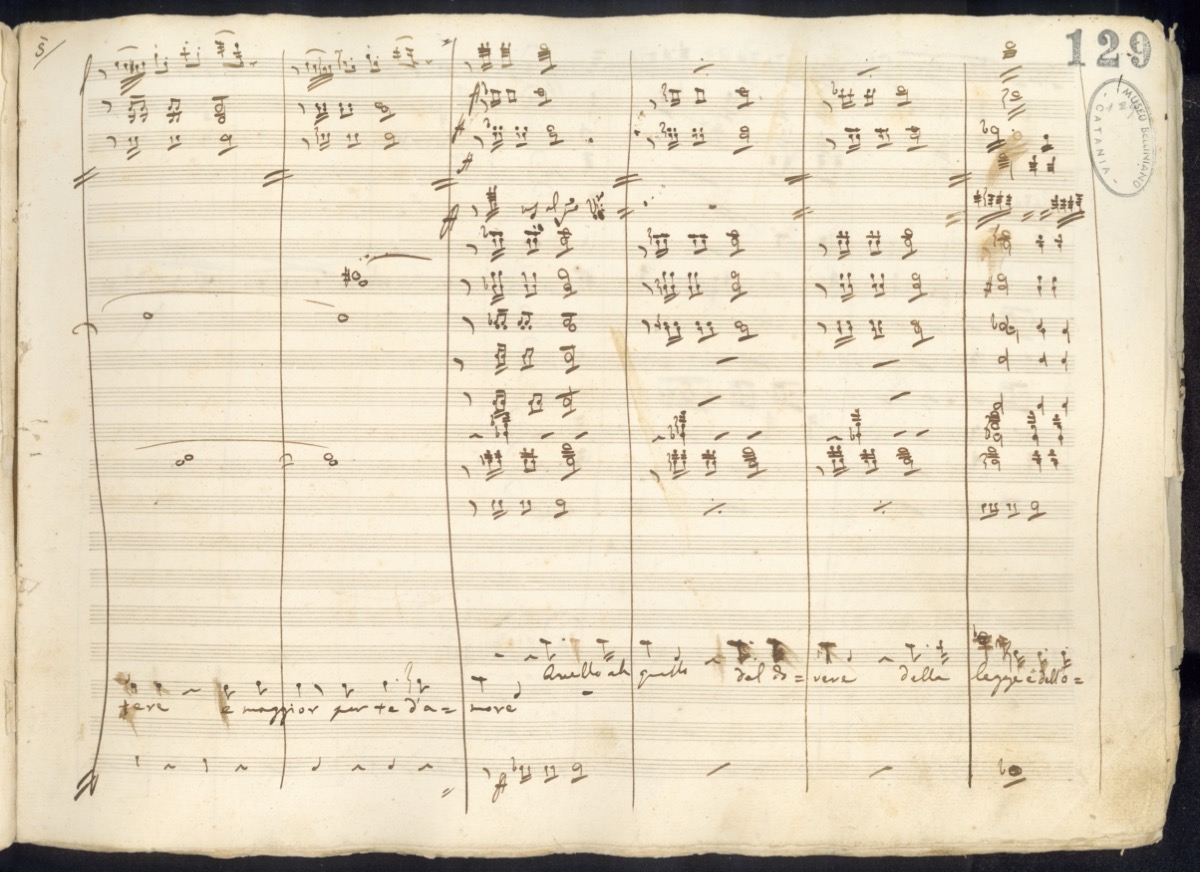 129
MUSEO BELLINIANO
CATANIA
quello ah quello dal do= vere della legge e dello=
tere e maggior per te d'a= more